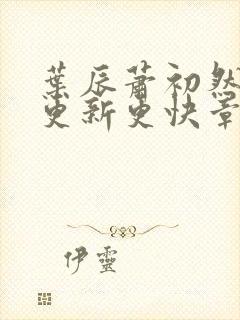 葉辰蕭初然
更新更快章
伊靈